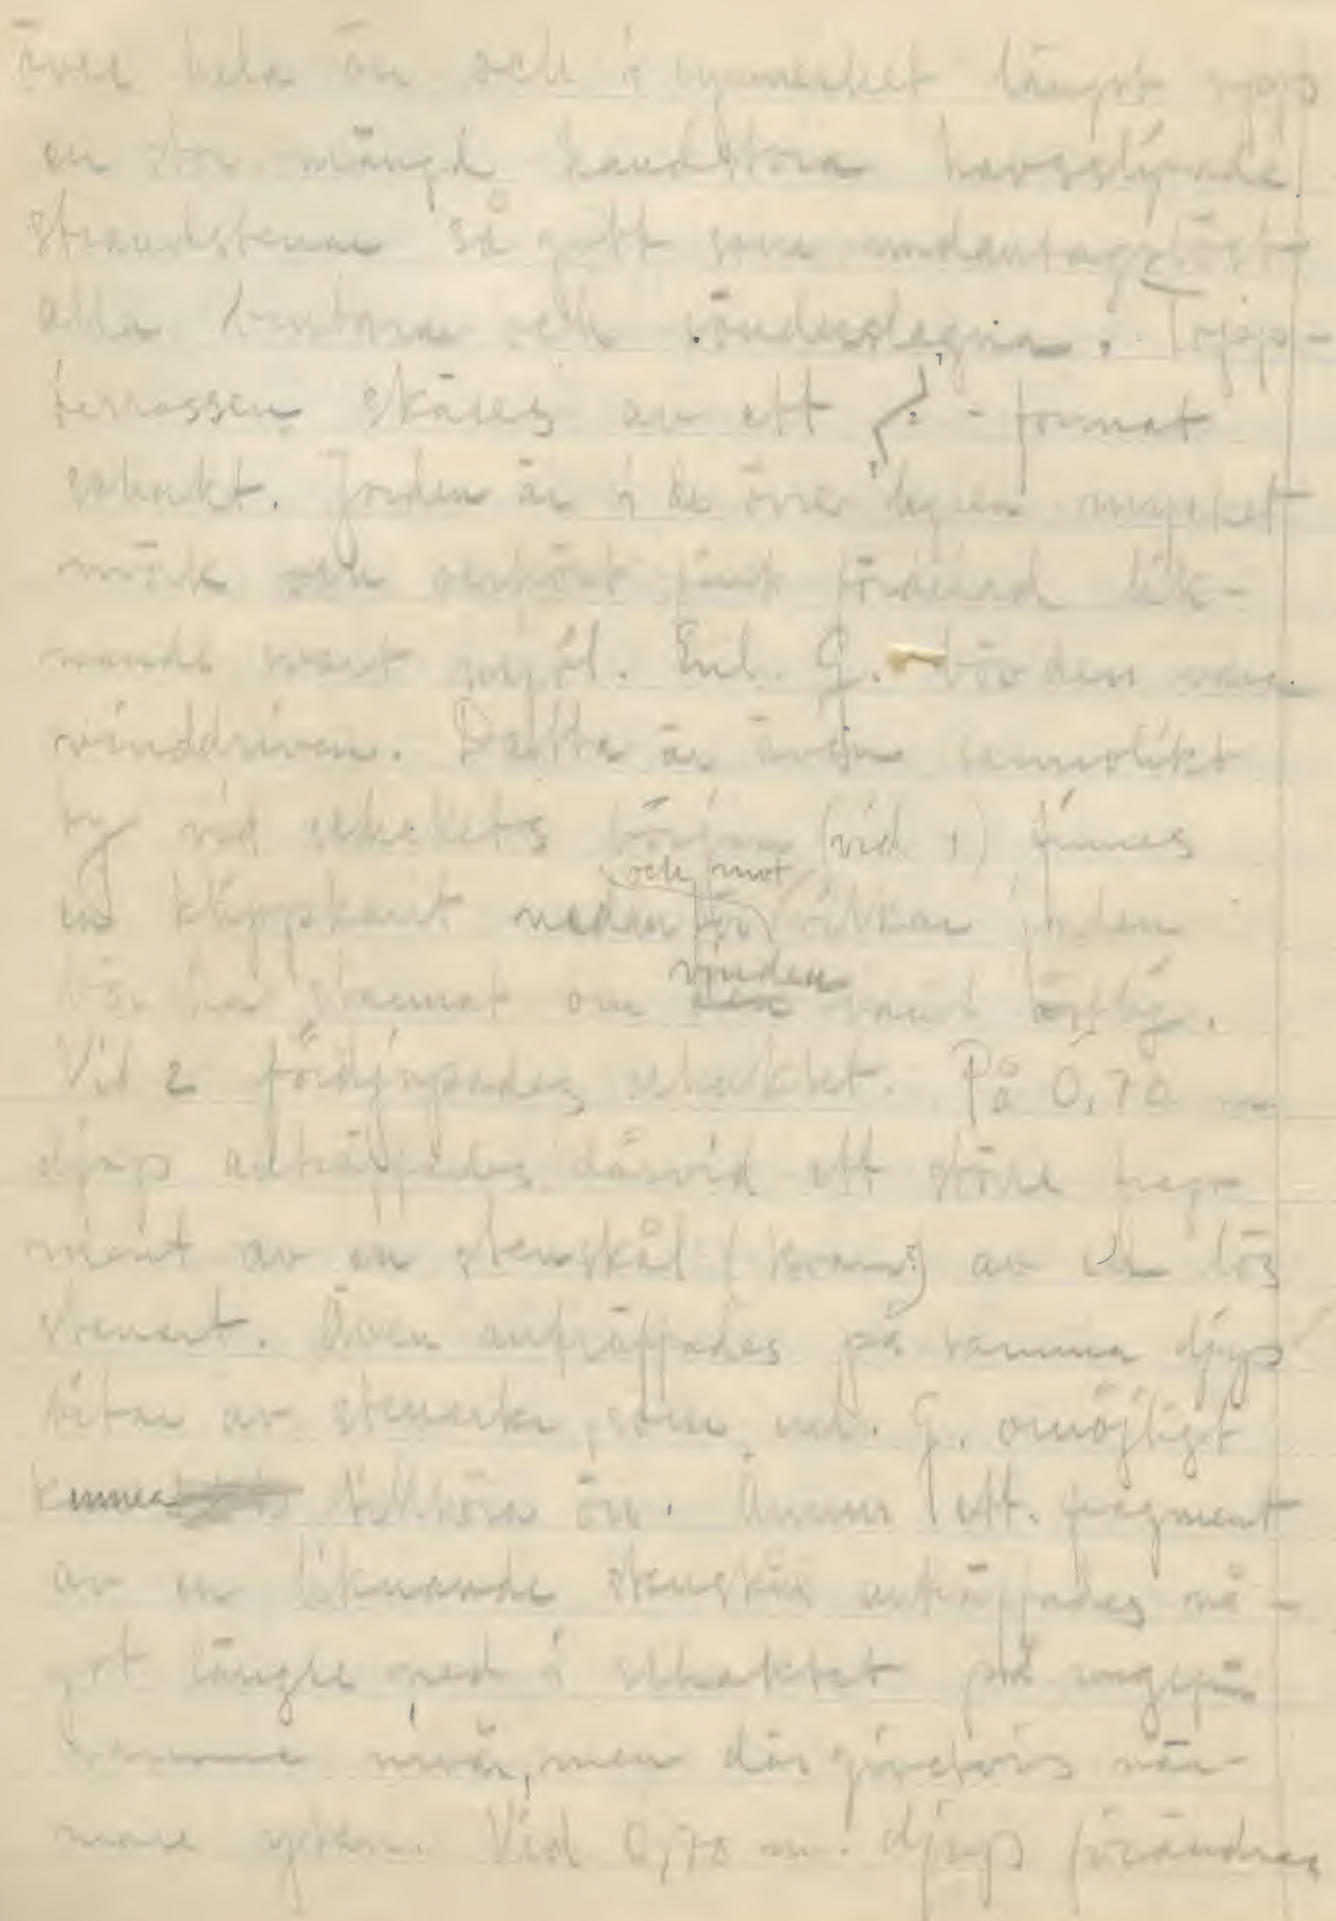 över hela ön och i synnerhet längst upp
en stor mängd handstora havsslipade
strandstenar så gott som undantagslöst
alla brustna och sönderslagna. Topp-
terrassen skäres av ett 1 2 3 - format
schakt. Jorden är i de övre lagren mycket
mörk och oerhört fint fördelad lik-
nande svart mjöl. Enl. G. bör den vara
vinddriven. Detta är även sannolikt
ty vid schaktets början (vid 1) finnes
en klippkant nedanför och mot vilken jorden
bör ha stannat om vinden varit kraftig.
Vid 2 fördjupades schaktet. På 0,70 m
djup anträffades därvid ett större frag-
ment av en stenskål (kvarn?) av en lös
stenart. Även anträffades på samma djup
bitar av stenarter, som enl. G. omöjligt
kunna tillhöra ön. Ännu ett fragment
av en liknande stenskål anträffades nå-
got längre ned i schaktet på ungefär
samma nivå, men där givetvis när-
mare ytan. Vid 0,70 m. djup förändras